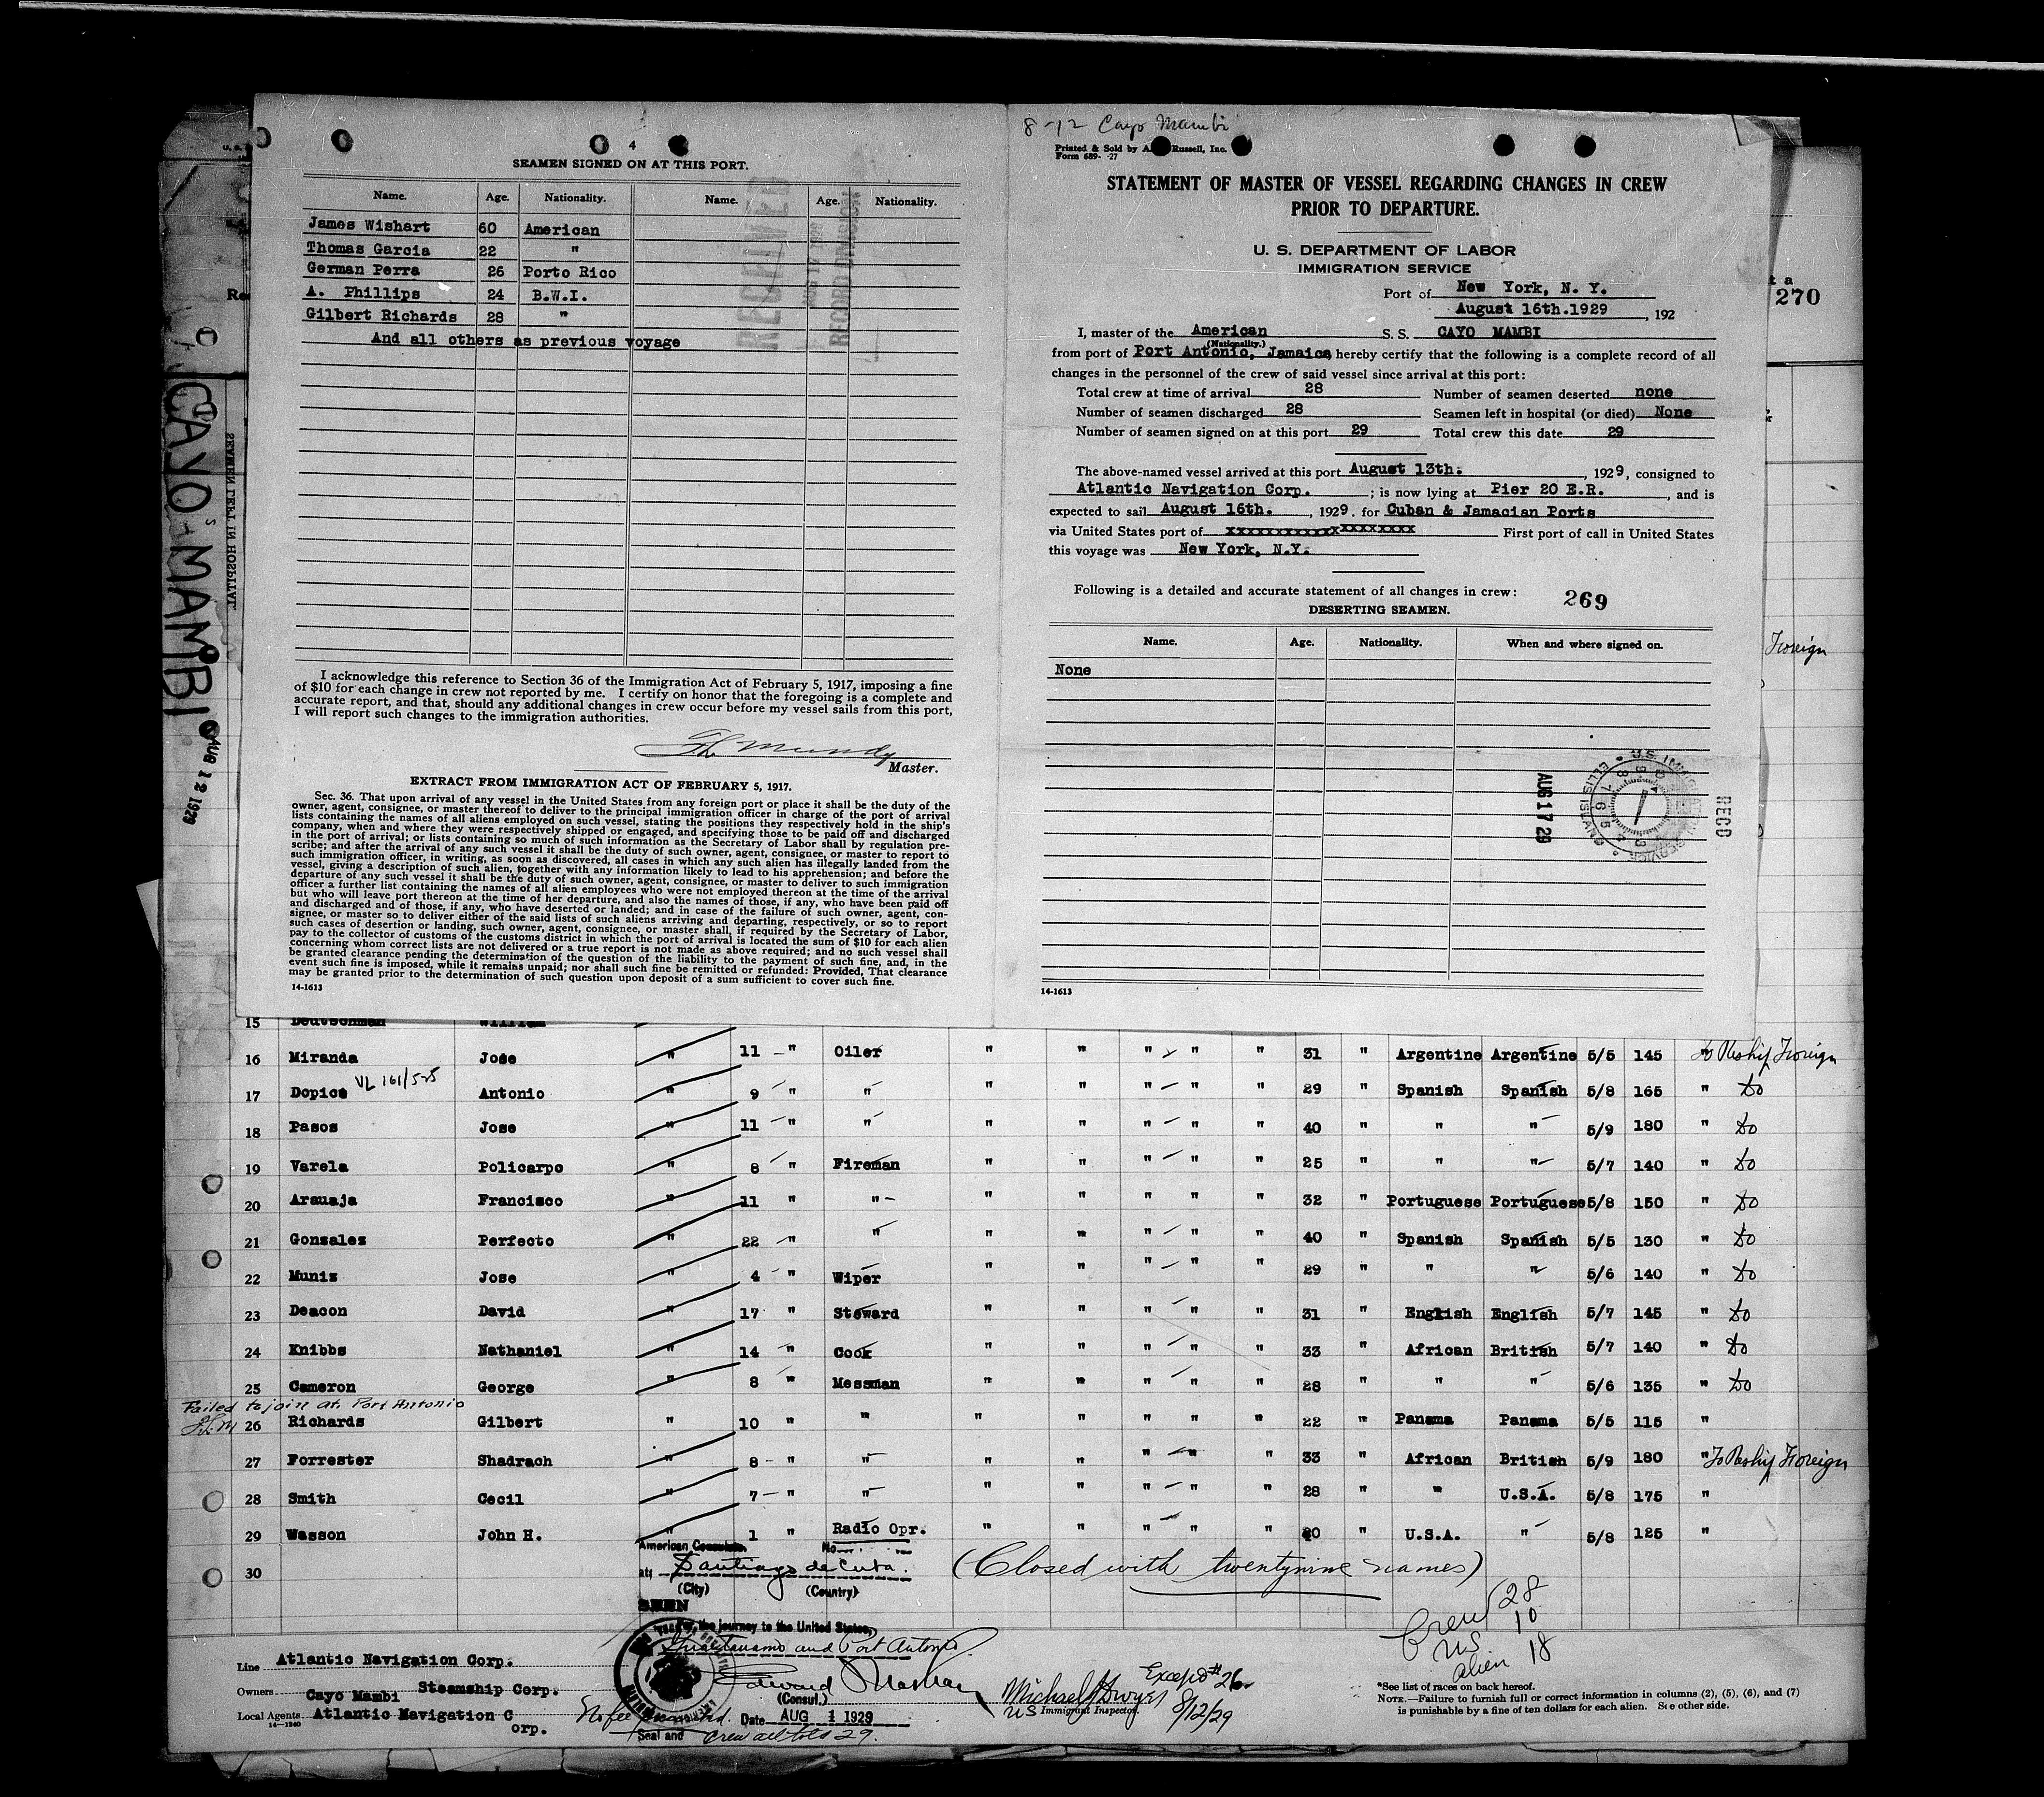 4
SEAMEN SIGNED ON AT THIS PORT.
Name. Age. Nationality. Name. Age. Nationality.
James Wishart 60 American
Thomas Garcia 22 "
German Perra 26 Porto Rico
A. Phillips 24 B.W.I.
Gilbert Richards 28 "
And all others as previous voyage
I acknowledge this reference to Section 36 of the Immigration Act of February 5, 1917, imposing a fine
of $10 for each change in crew not reported by me. I certify on honor that the foregoing is a complete and
accurate report, and that, should any additional changes in crew occur before my vessel sails from this port,
I will report such changes to the immigration authorities.
Master.
EXTRACT FROM IMMIGRATION ACT OF FEBRUARY 5, 1917.
Sec. 36. That upon arrival of any vessel in the United States from any foreign port or place it shall be the duty of the
owner, agent, consignee, or master thereof to deliver to the principal immigration officer in charge of the port of arrival
lists containing the names of all aliens employed on such vessel, stating the positions they respectively hold in the ship's
company, when and where they were respectively shipped or engaged, and specifying those to be paid off and discharged
in the port of arrival; or lists containing so much of such information as the Secretary of Labor shall by regulation pre-
scribe; and after the arrival of any such vessel it shall be the duty of such owner, agent, consignee, or master to report to
such immigration officer, in writing, as soon as discovered, all cases in which any such alien has illegally landed from the
vessel, giving a description of such alien, together with any information likely to lead to his apprehension; and before the
departure of any such vessel it shall be the duty of such owner, agent, consignee, or master to deliver to such immigration
officer a further list containing the names of all alien employees who were not employed thereon at the time of the arrival
but who will leave port thereon at the time of her departure, and also the names of those, if any, who have been paid off
and discharged and of those, if any, who have deserted or landed; and in case of the failure of such owner, agent, con-
signee, or master so to deliver either of the said lists of such aliens arriving and departing, respectively, or so to report
such cases of desertion or landing, such owner, agent, consignee, or master shall, if required by the Secretary of Labor,
pay to the collector of customs of the customs district in which the port of arrival is located the sum of $10 for each alien
concerning whom correct lists are not delivered or a true report is not made as above required; and no such vessel shall
be granted clearance pending the determination of the question of the liability to the payment of such fine, and, in the
event such fine is imposed, while it remains unpaid; nor shall such fine be remitted or refunded: Provided, That clearance
may be granted prior to the determination of such question upon deposit of a sum sufficient to cover such fine.
14-1613
8-12 Cayo Mambi
Printed & Sold by A. Russell, Inc.
Form 689- -27
STATEMENT OF MASTER OF VESSEL REGARDING CHANGES IN CREW
PRIOR TO DEPARTURE.
U. S. DEPARTMENT OF LABOR
IMMIGRATION SERVICE
Port of New York, N. Y.
August 16th.1929, 192
I, master of the American S. S. CAYO MAMBI
(Nationality.)
from port of Port Antonio, Jamaica, hereby certify that the following is a complete record of all
changes in the personnel of the crew of said vessel since arrival at this port:
Total crew at time of arrival 28 Number of seamen deserted none
Number of seamen discharged 28 Seamen left in hospital (or died) None
Number of seamen signed on at this port 29 Total crew this date 29
The above-named vessel arrived at this port August 13th. , 1929, consigned to
Atlantic Navigation Corp. ; is now lying at Pier 20 E.R. , and is
expected to sail August 16th. , 1929. for Cuban & Jamacian Ports
via United States port of xxxxxxxxxxxxxxxxxxxx First port of call in United States
this voyage was New York, N.Y.
Following is a detailed and accurate statement of all changes in crew: 269
DESERTING SEAMEN.
Name. Age. Nationality. When and where signed on.
None
AUG 17 29
U.S. IMMIGRATION SERVICE ELLIS ISLAND
RECD
14-1613
270
Foreign
CAYO MAMBI
AUG 12 1929
SEAMEN LEFT IN HOSPITAL
RECORD DIVISION
15 Deutschman William
16 Miranda Jose " 11 " Oiler " " " " " 31 " Argentine Argentine 5/5 145 To Reship Foreign
17 Dopico VL 161/525 Antonio " 9 " " " " " " " 29 " Spanish Spanish 5/8 165 " Do
18 Pasos Jose " 11 " " " " " " " 40 " " " 5/9 180 " Do
19 Varela Policarpo " 8 " Fireman " " " " " 25 " " " 5/7 140 " Do
20 Arauaja Francisco " 11 " " " " " " " 32 " Portuguese Portuguese 5/8 150 " Do
21 Gonzales Perfecto " 22 " " " " " " " 40 " Spanish Spanish 5/5 130 " Do
22 Muniz Jose " 4 " Wiper " " " " " 29 " " " 5/6 140 " Do
23 Deacon David " 17 " Steward " " " " " 31 " English English 5/7 145 " Do
24 Knibbs Nathaniel " 14 " Cook " " " " " 33 " African British 5/7 140 " Do
25 Cameron George " 8 " Messman " " " " " 28 " " " 5/6 135 " Do
Failed to join at Port Antonio
26 Richards Gilbert " 10 " " " " " " " 22 " Panama Panama 5/5 115 "
27 Forrester Shadrach " 8 " " " " " " " 33 " African British 5/9 180 " To Reship Foreign
28 Smith Cecil " 7 " " " " " " " 28 " " U.S.A. 5/8 175 "
29 Wasson John H. " 1 " Radio Opr. " " " " " 20 " U.S.A. " 5/8 125 "
30
American Consulate, No.
at Santiago de Cuba.
(City) (Country)
SEEN
(Closed with twentynine names)
For the journey to the United States,
Guantanamo and Port Antonio
Crew 28
US. 10
alien 18
Line Atlantic Navigation Corp.
Owners Cayo Mambi Steamship Corp.
Local Agents Atlantic Navigation Corp.
14-1240
(Consul.)
No fee
Date AUG 1 1929
Seal and
Crew all told 29.
Except #26
Michael J Dwyer 8/12/29
US Immigrant Inspector.
*See list of races on back hereof.
NOTE.—Failure to furnish full or correct information in columns (2), (5), (6), and (7)
is punishable by a fine of ten dollars for each alien. See other side.